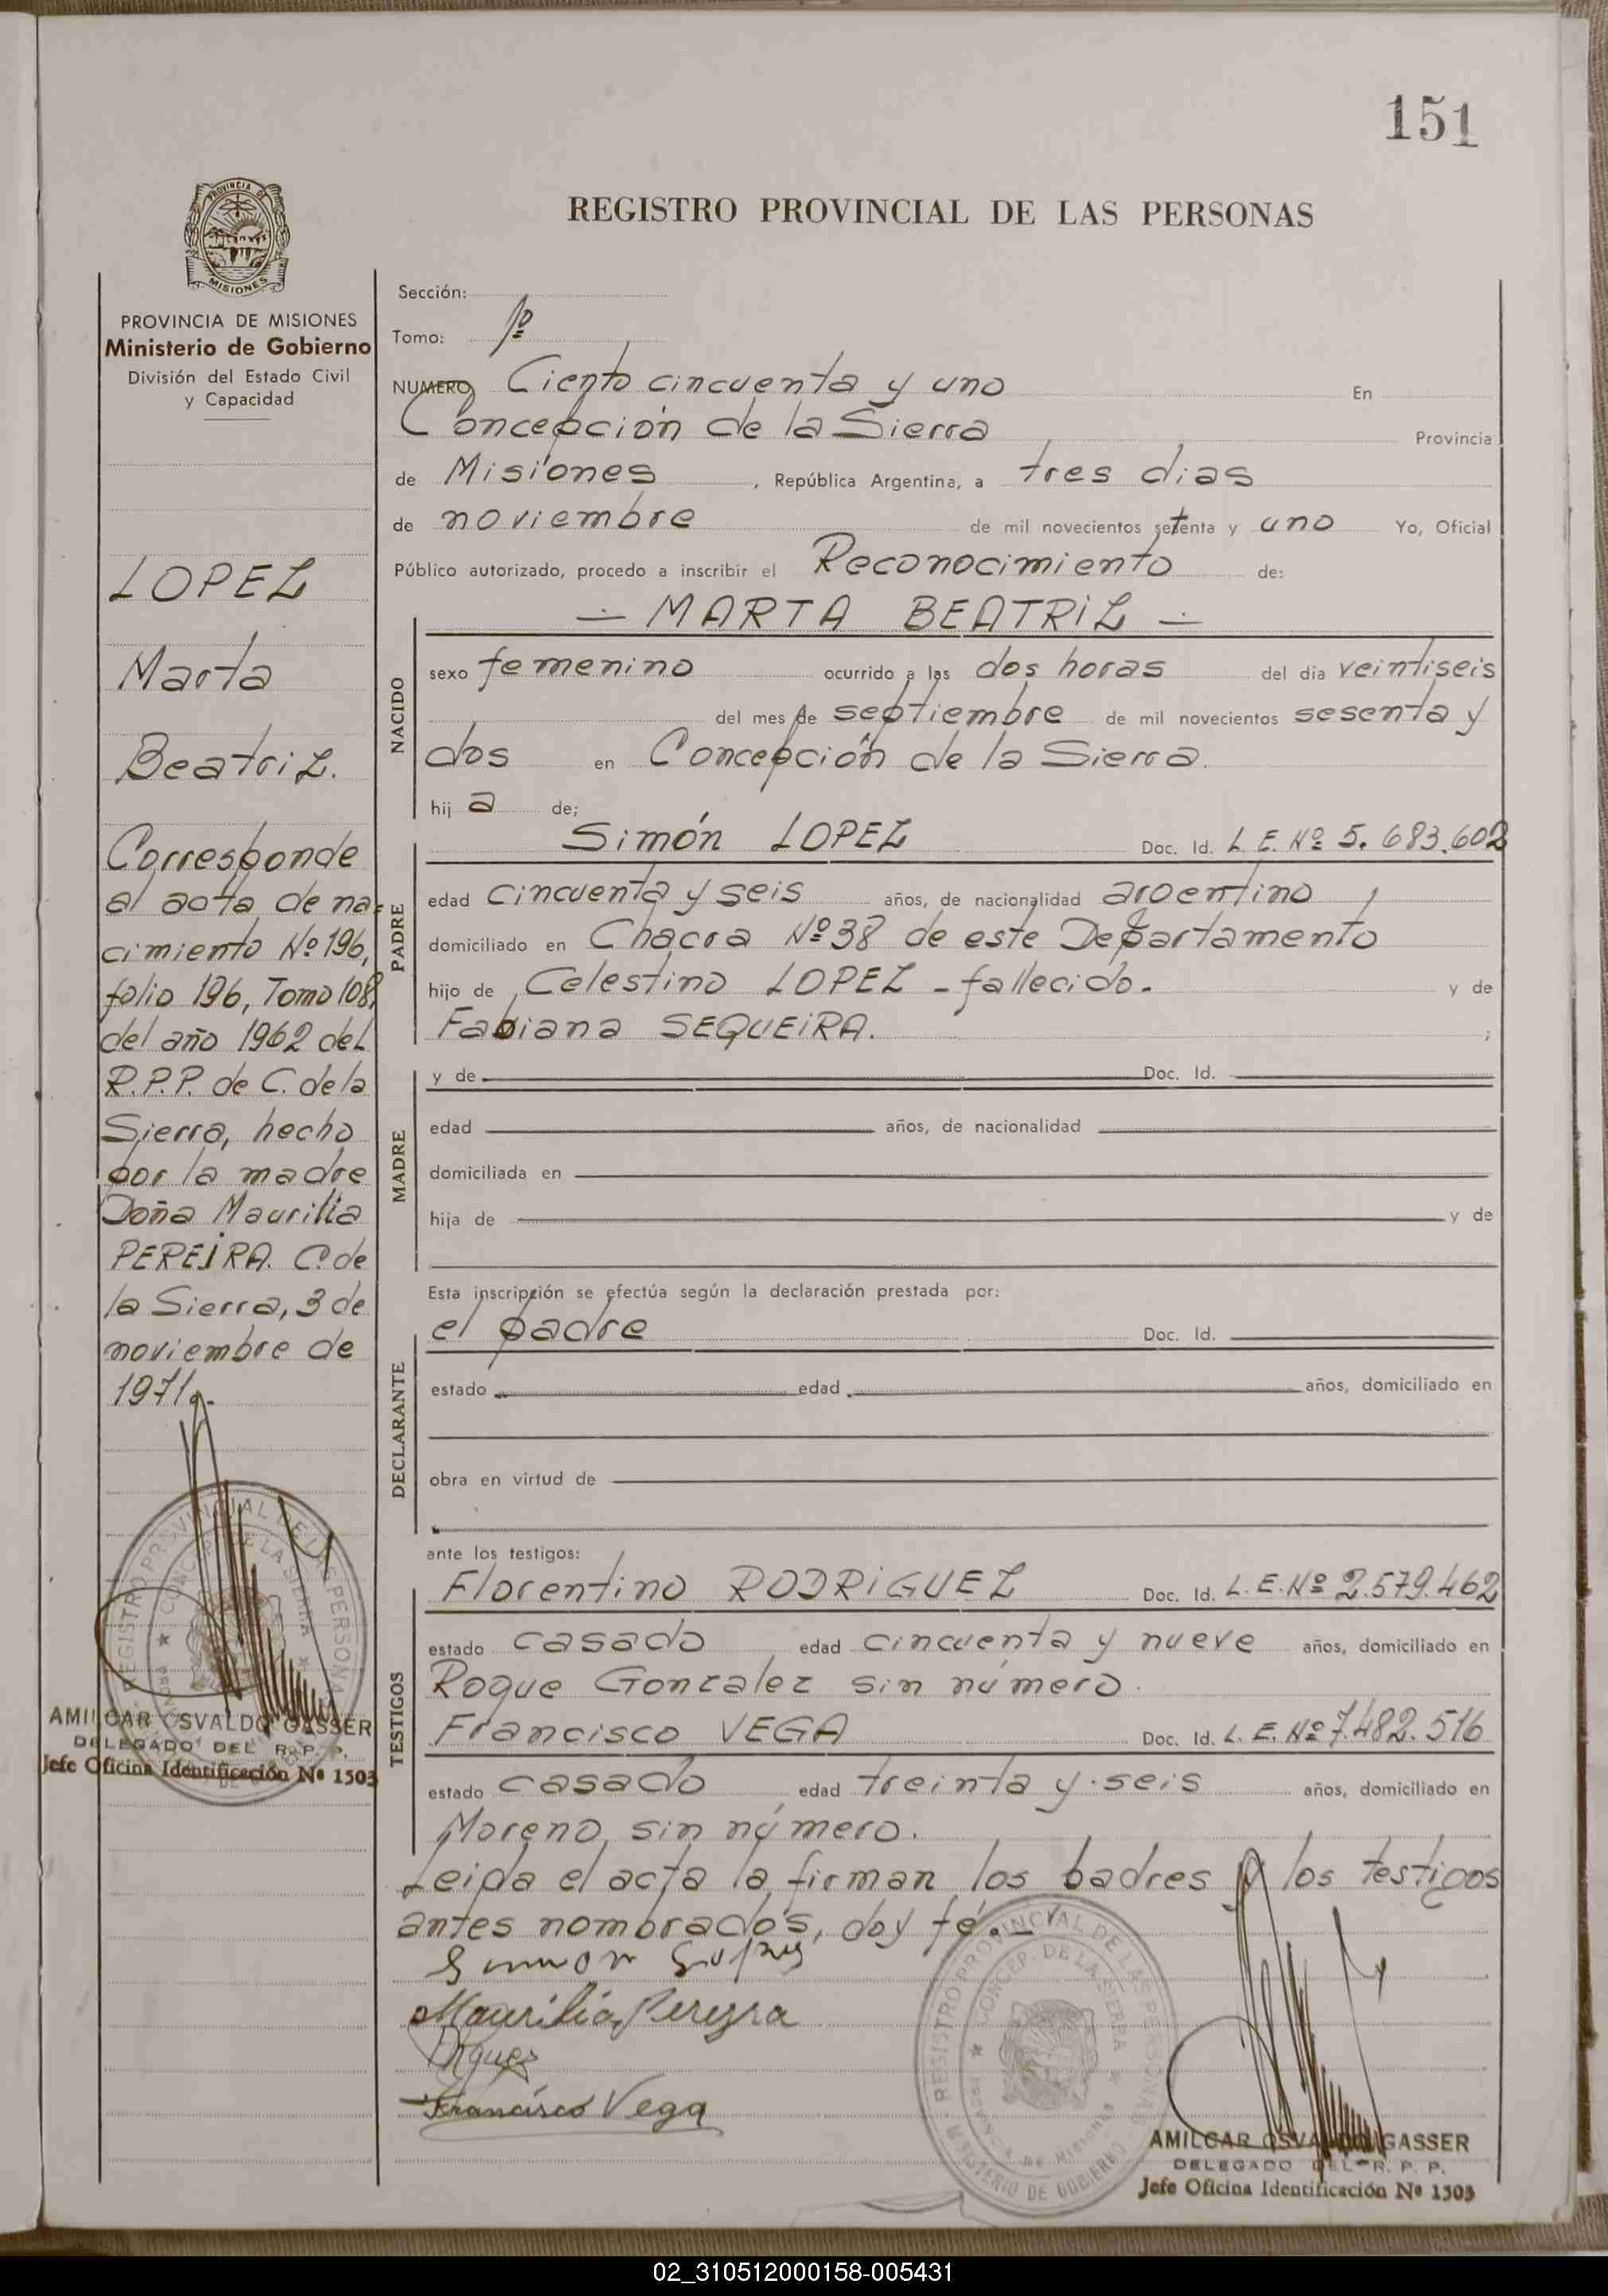 151
REGISTRO PROVINCIAL DE LAS PERSONAS
PROVINCIA DE MISIONES
Ministerio de Gobierno
División del Estado Civil
y Capacidad
LOPEZ
Marta
Beatriz.
Corresponde
al acta de na-
cimiento Nº 196,
folio 196, Tomo 108,
del año 1962 del
R.P.P. de C. de la
Sierra, hecho
por la madre
Doña Maurilia
PEREIRA. C. de
la Sierra, 3 de
noviembre de
1971.
AMILCAR OSVALDO GASSER
DELEGADO DEL R. P. P.
Jefe Oficina Identificación Nº 1503
Sección:
Tomo: 1º
NUMERO Ciento cincuenta y uno En
Concepción de la Sierra Provincia
de Misiones, República Argentina, a tres dias
de noviembre de mil novecientos setenta y uno Yo, Oficial
Público autorizado, procedo a inscribir el Reconocimiento de:
— MARTA BEATRIZ —
NACIDO
sexo femenino ocurrido a las dos horas del dia veintiseis
del mes de septiembre de mil novecientos sesenta y
dos en Concepción de la Sierra.
hija de;
PADRE
Simón LOPEZ Doc. Id. L.E. Nº 5.683.602
edad cincuenta y seis años, de nacionalidad argentino,
domiciliado en Chacra Nº 38 de este Departamento
hijo de Celestino LOPEZ - fallecido. y de
Fabiana SEQUEIRA. ;
MADRE
y de Doc. Id.
edad años, de nacionalidad
domiciliada en
hija de y de
Esta inscripción se efectúa según la declaración prestada por:
DECLARANTE
el padre Doc. Id.
estado edad años, domiciliado en
obra en virtud de
ante los testigos:
TESTIGOS
Florentino RODRIGUEZ Doc. Id. L.E. Nº 2.579.462
estado casado edad cincuenta y nueve años, domiciliado en
Roque Gonzalez sin número.
Francisco VEGA Doc. Id. L.E. Nº 7.482.516
estado casado edad treinta y seis años, domiciliado en
Moreno sin número.
Leida el acta la firman los padres y los testigos
antes nombrados, doy fé.
Maurilia Pereyra
Francisco Vega
REGISTRO PROVINCIAL DE LAS PERSONAS
CONCEP. DE LA SIERRA
PROVINCIA DE MISIONES
MINISTERIO DE GOBIERNO
AMILCAR OSVALDO GASSER
DELEGADO DEL R. P. P.
Jefe Oficina Identificación Nº 1503
02_310512000158-005431